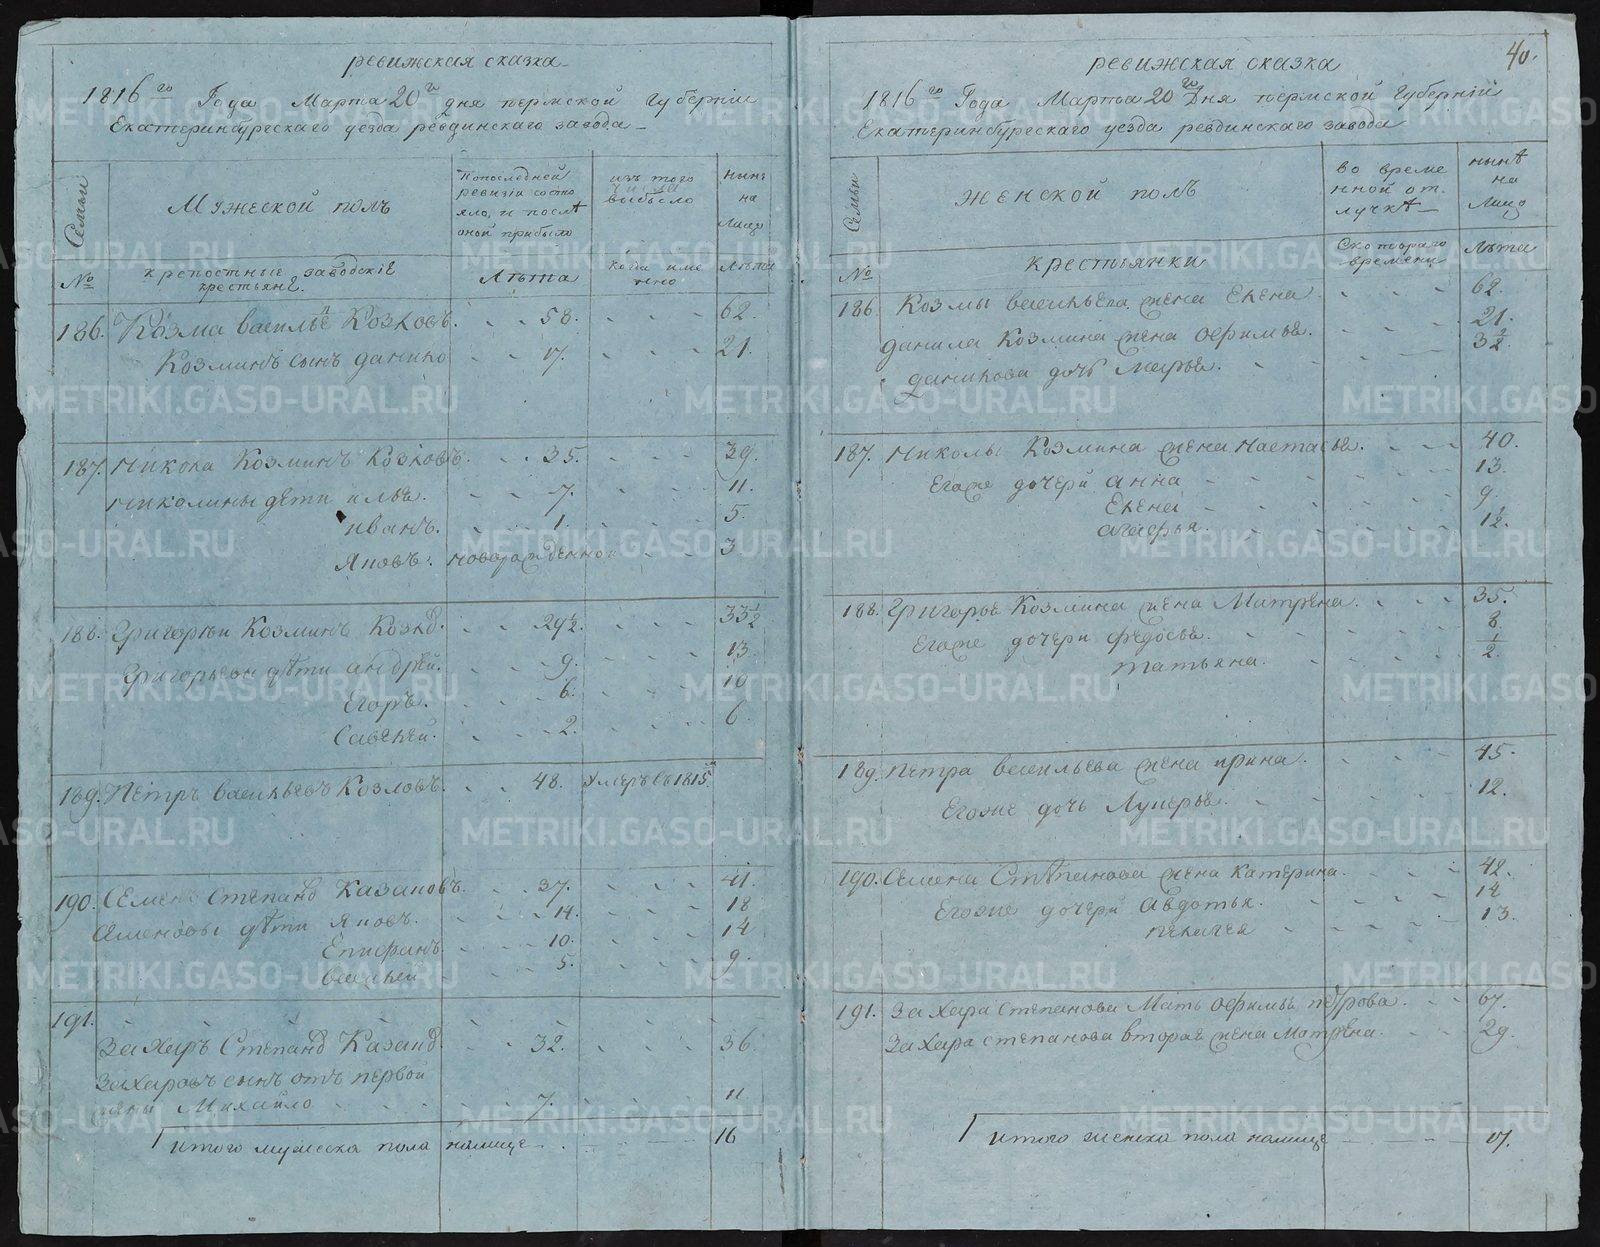 40.
ревижская сказка
1816го Года Марта 20го дня пермской Губернии
Екатеринбургскаго уезда ревдинскаго завода
Семьи
Мужеской полъ
По последней ревизіи состояло, и послѣ оной прибыло
изъ того числа выбыло
нынѣ на лицо
№
крепостные заводскіе крестьяне
Лѣта
когда имянно
Лѣта
186. Козма васильев Козловъ. 58. 62.
Козминъ сынъ данило 17. 21.
187. Никола Козминъ Козловъ. 35. 39.
Николины дети илья. 7. 11.
иванъ. 1. 5.
Яковъ. новорожденной 3
188. Григорьи Козминъ Козлв. 29½. 33½
Григорьевы дѣти андрей. 9. 13.
Егоръ. 6. 10
Савелей. 2. 6.
189. Петръ васильевъ Козловъ. 48. Умеръ въ 1815
190. Семенъ Степанв Казаковъ. 37. 41.
Семеновы дѣти Яковъ. 14. 18
Епифанъ 10. 14
василей 5. 9.
191.
Захаръ Степанв Казанв. 32. 36.
Захаровъ сынъ отъ первой
жены Михайло 7. 11
итого мужеска пола налице 16
ревижская сказка
1816го Года Марта 20го Дня пермской Губерніи
Екатеринбургскаго уезда ревдинскаго завода
Семьи
Женской полъ
во временной отлучкѣ
нынѣ на лицо
№
крестьянки
Скотораго времени
Лѣта
186 Козмы васильева жена Елена 62.
данила Козмина жена Офимья. 21.
данилова дочь Марья. 3½
187. Николы Козмина жена Настасья. 40.
Егоже дочери анна 13.
Елена 9.
1½.
188. Григорья Козмина жена Матрена. 35.
Егоже дочери федосья. 8.
татьяна. ½.
189. Петра васильева жена ирина. 45.
Егоже дочь Лукерья. 12.
190. Семена Стѣпанова жена Катерина. 42.
Егоже дочери Авдотья. 14
пелагея 13.
191. Захара степанова Мать Офимья петрова. 67.
Захара степанова вторая жена Матрена. 29.
итого женска пола налице 17.
METRIKI.GASO-URAL.RU